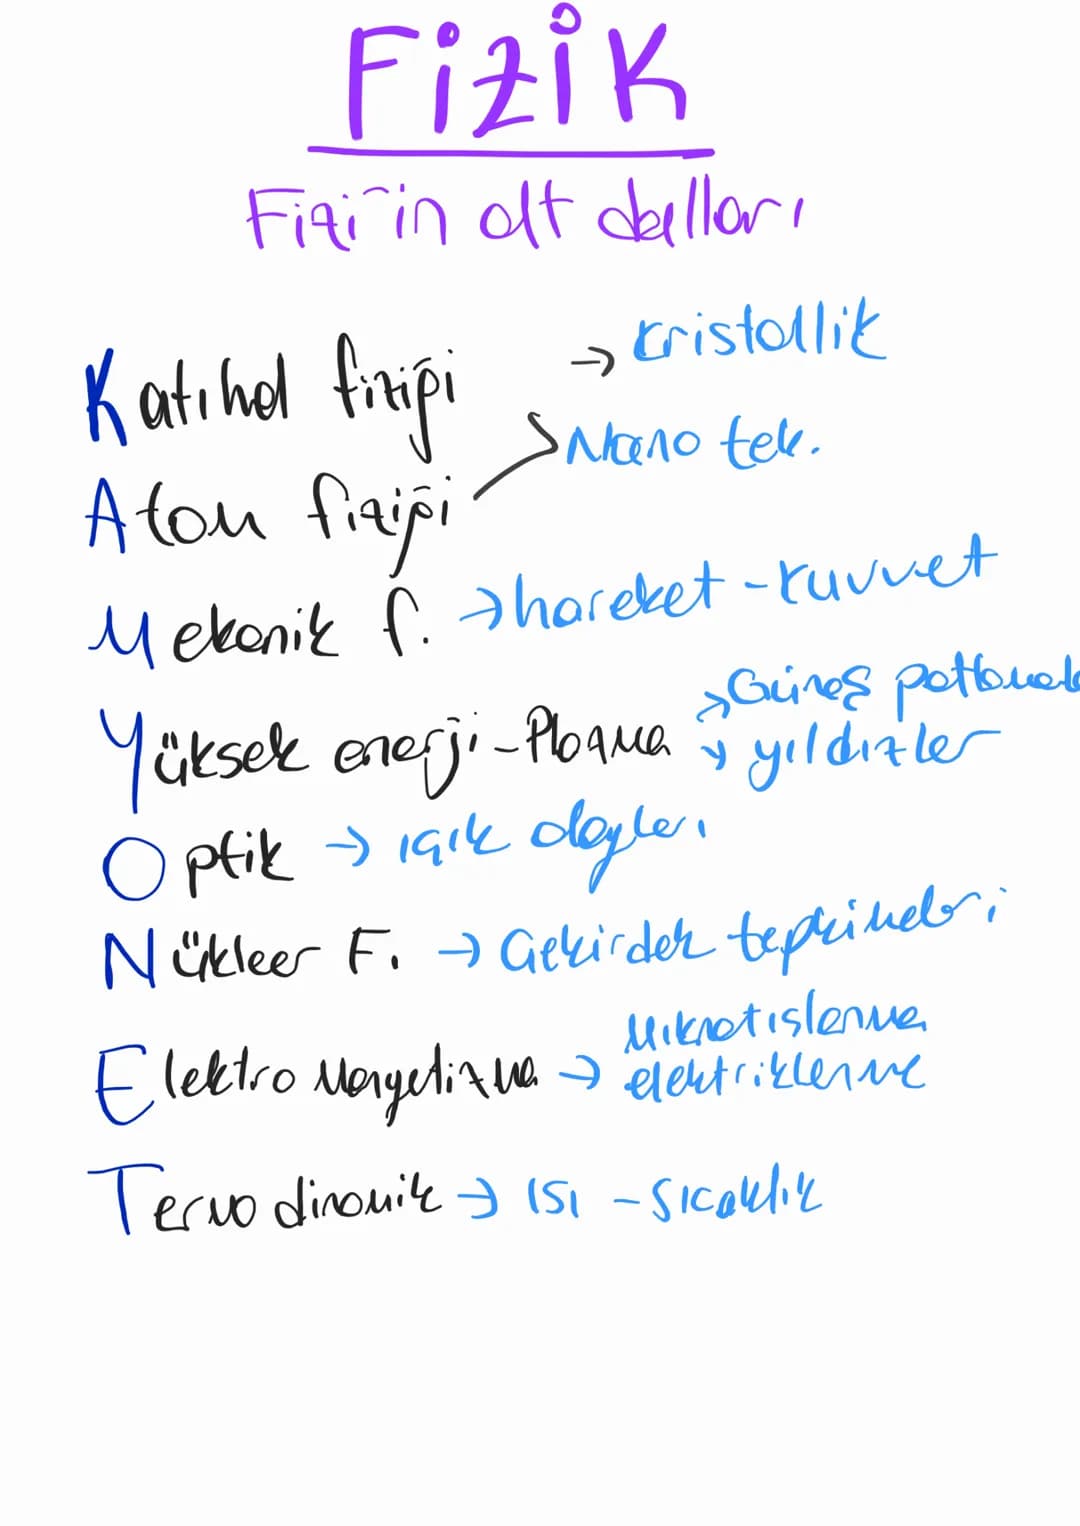 Fizik
Fiziğin alt dalları
Katıhal fiziği → kristallik
Atom fiziği → Nano tek.
Mekanik f. → hareket - kuvvet
Yüksek enerji - Plazma → Güneş patlamala
→ yıldızlar
Optik → ışık olayları
Nükleer F. → Çekirdek tepkimeleri
Elektro Mangetizma → Mıknatıslanma
elektriklenme
Termodinamik → ISI - Sıcaklık